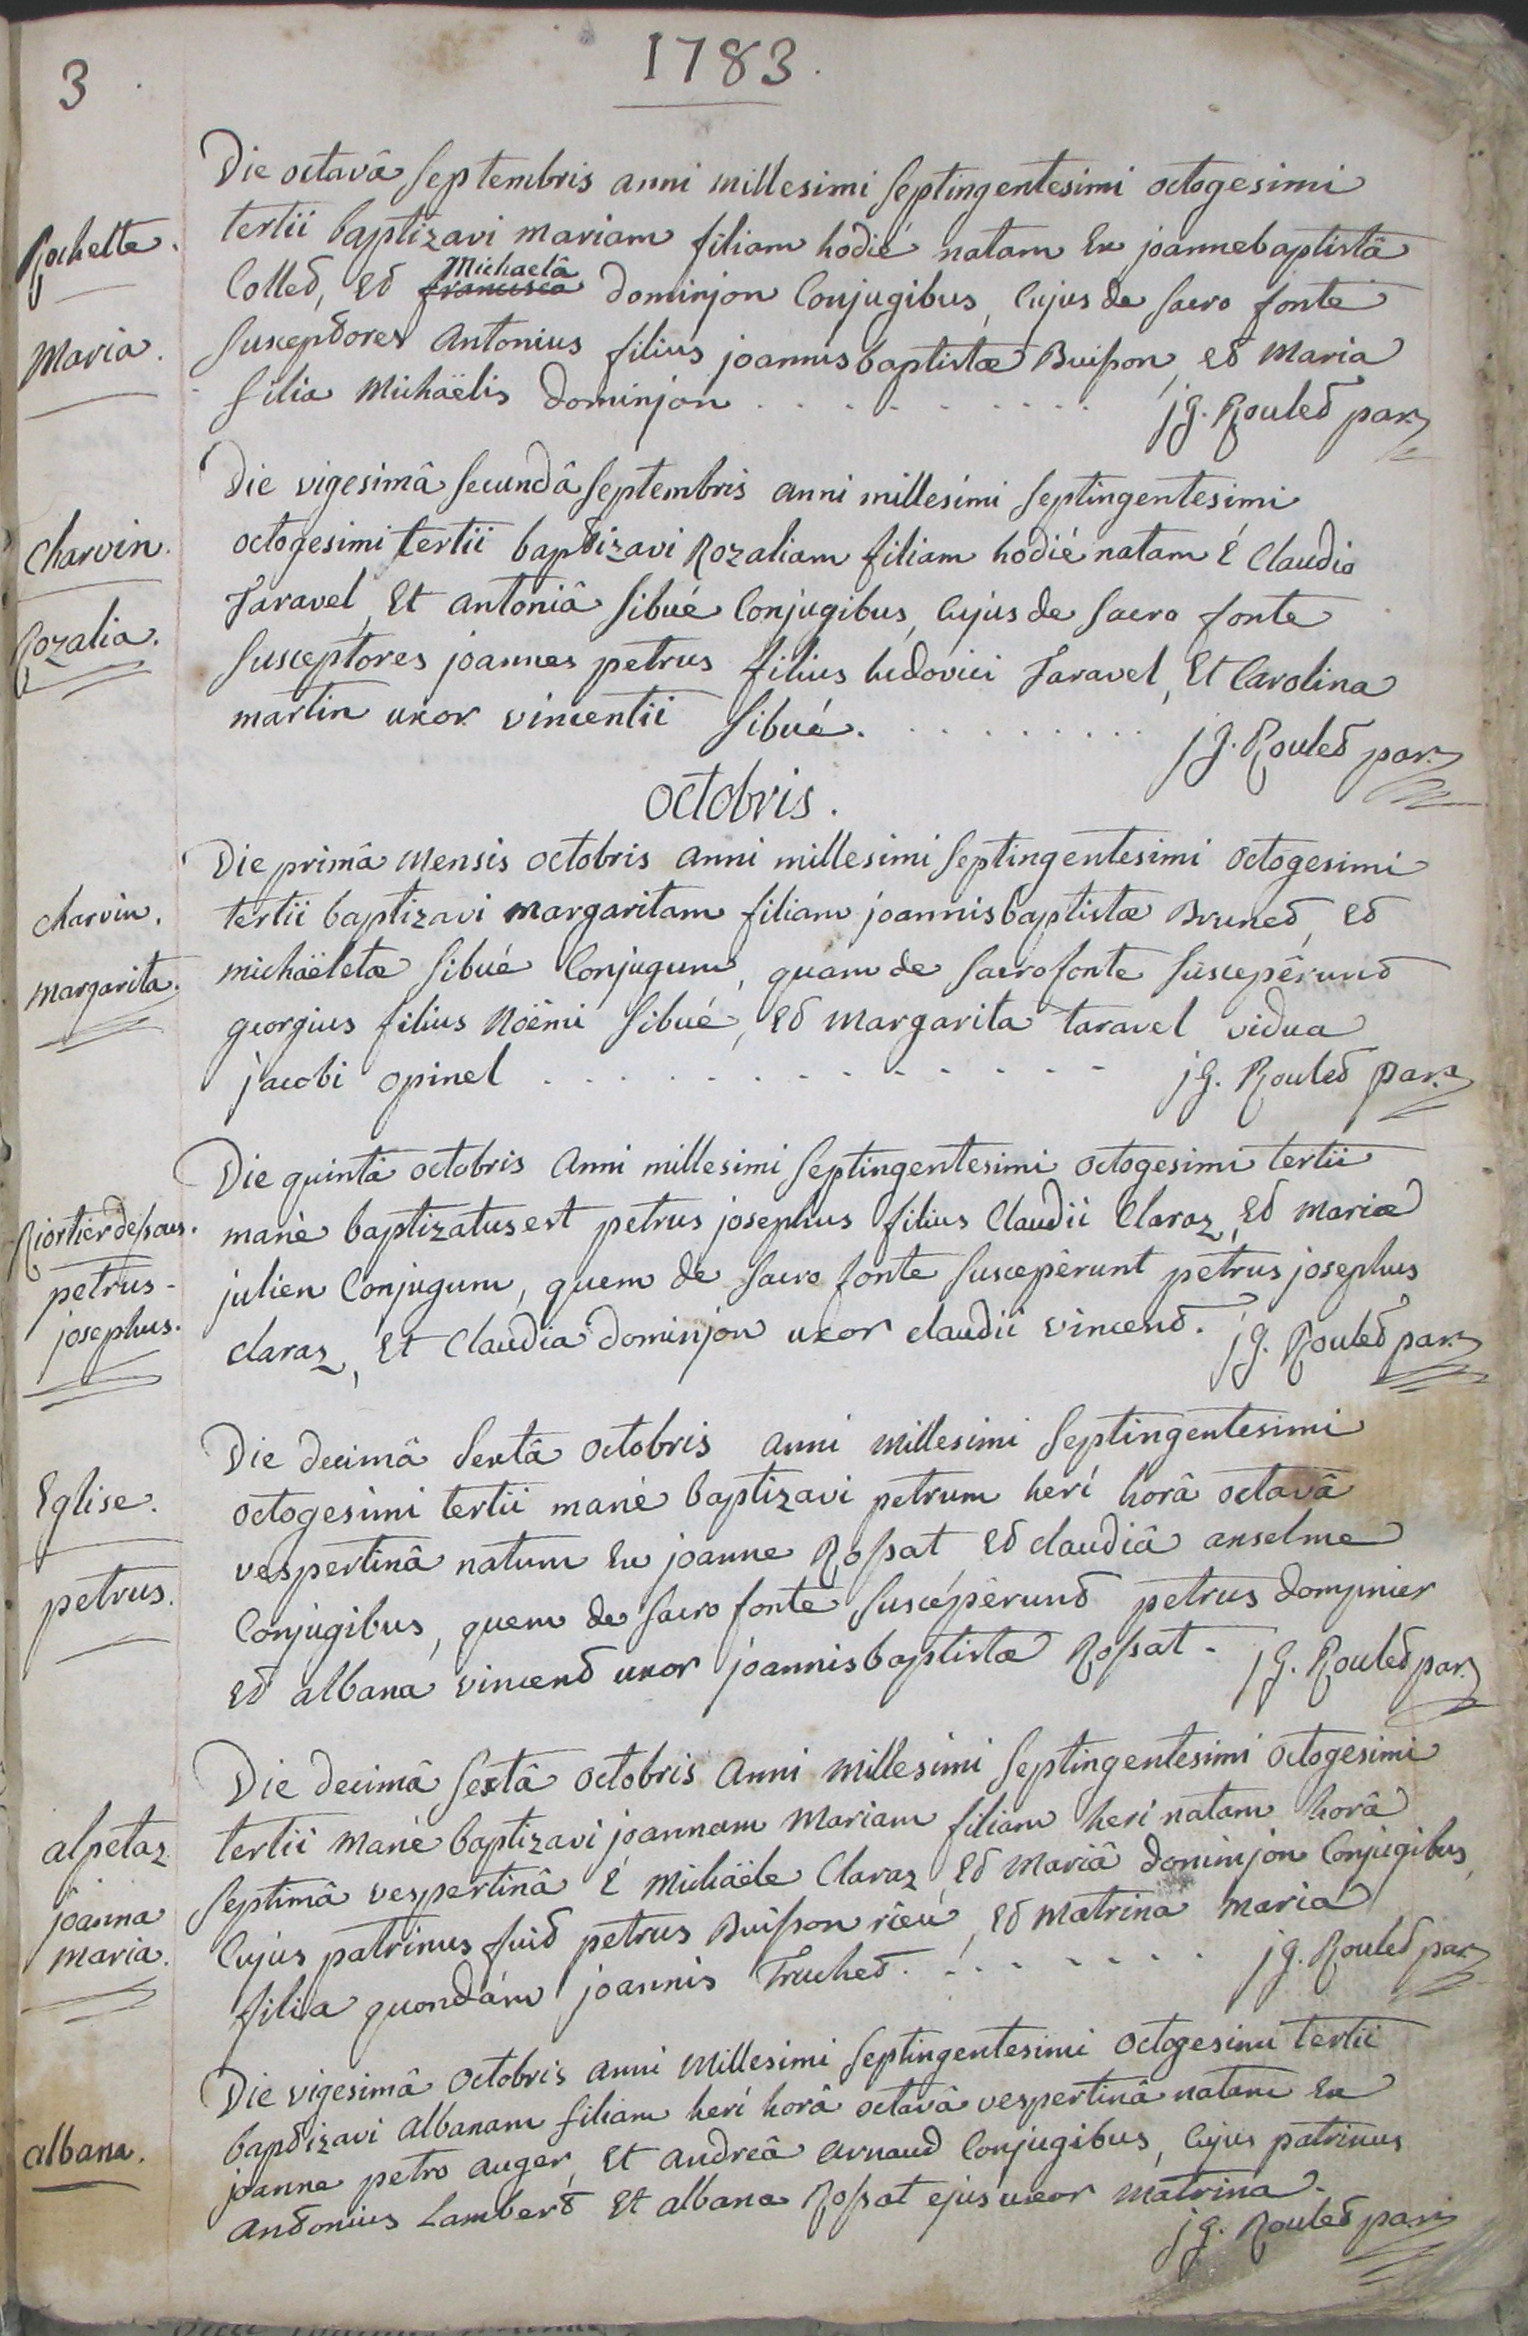 3
1783.
Rochette.
Maria.
Die octavâ Septembris anni millesimi Septingentesimi octogesimi
tertii baptizavi mariam filiam hodié natam Ex joannebaptistâ
Collet, Et francisca Michaelâ dominjon Conjugibus, Cujus de Sacro fonte
Susceptores Antonius filius joannis baptistæ Buisson, et Maria
filia Michaëlis dominjon . . . . . . . . . j G. Roulet par.
Charvin.
Rozalia.
Die vigesimâ Secundâ Septembris anni millesimi Septingentesimi
octogesimi tertii baptizavi Rozaliam filiam hodié natam é Claudio
Taravel, Et antoniâ Sibué Conjugibus, Cujus de Sacro fonte
Susceptores joannes petrus filius ludovici Taravel, Et Carolina
martin uxor vincentii Sibué. . . . . . . . . j G. Roulet par.
octobris.
charvin.
margarita.
Die primâ mensis octobris anni millesimi Septingentesimi octogesimi
tertii baptizavi margaritam filiam joannisbaptistæ Brunet, et
michäeletæ Sibué Conjugum, quam de Sacrofonte Suscepêrunt
georgius filius Nöêmi Sibué, et Margarita taravel vidua
jacobi opinel . . . . . . . . . . . . . j G. Roulet par.
Riortier dessous.
petrus-
josephus.
Die quintâ octobris anni millesimi Septingentesimi octogesimi tertii
manè baptizatus est petrus josephus filius Claudii Claraz, et mariæ
julien Conjugum, quem de Sacro fonte Suscepêrunt petrus josephus
claraz, Et Claudia dominjon uxor claudii vincent. j G. Roulet par.
Eglise.
petrus.
Die decimâ Sextâ octobris anni millesimi Septingentesimi
octogesimi tertii manè baptizavi petrum herí horâ octavâ
vespertinâ natum Ex joanne Rossat et claudiâ anselme
Conjugibus, quem de Sacro fonte Suscépêrunt petrus dompnier
et albana vincent uxor joannisbaptistæ Rossat. j G. Roulet par.
alpetaz
joanna
maria.
Die decimâ Sextâ octobris anni millesimi Septingentesimi octogesimi
tertii manè baptizavi joannam Mariam filiam herí natam horâ
Septimâ vespertinâ é Michäele Claraz et Mariâ dominjon Conjugibus,
Cujus patrinus fuit petrus Buisson rieu, et Matrina maria
filia quondàm joannis Truchet. . . . . . . . j G. Roulet par.
albana.
Die vigesimâ octobris anni Millesimi Septingentesimi octogesimi tertii
baptizavi Albanam filiam herí horâ octavâ vespertinâ natam Ex
joanne petro auger, Et andreâ arnaud Conjugibus, Cujus patrinus
antonius Lambert Et albana Rossat ejus uxor matrina.
j G. Roulet par.